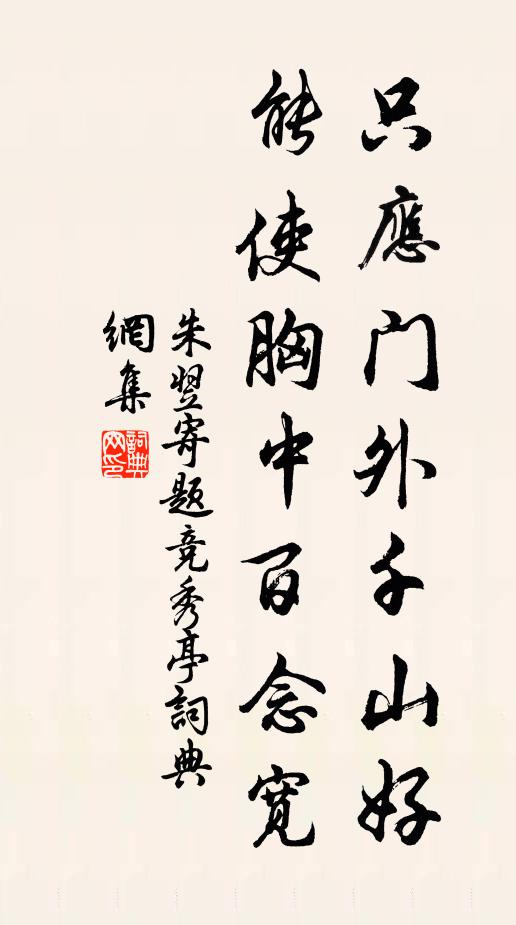 只應门外千山好
能使胸中百念寬
朱翌寄題竞秀亭詞典
網集
詞典网印